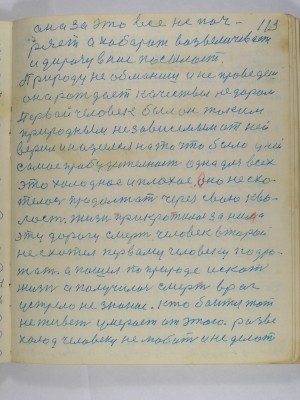 она за это все не поч-
113
ряет а наборот возвеличивает
и дарагу в ние посылает.
Природу не обманиш и не проведеш
она рождает качествы недаром
Первай человек был он таким
природным независемым от ней
верил и надеялся на то что было у ней
самае
одна для всех
это холоднае и плохае. Оно не схо-
телося продолжат через свою ква-
лост. жизн прикротилас за ним
эту дарогу смерт человек втарой
не схотел первому человеку подро-
жат а пошел по природе искат
жизн а получилас смерт враг
устрело не знание. Кто боится тот
не живет умерает от этого. разве
холод человеку не мабит и не делат